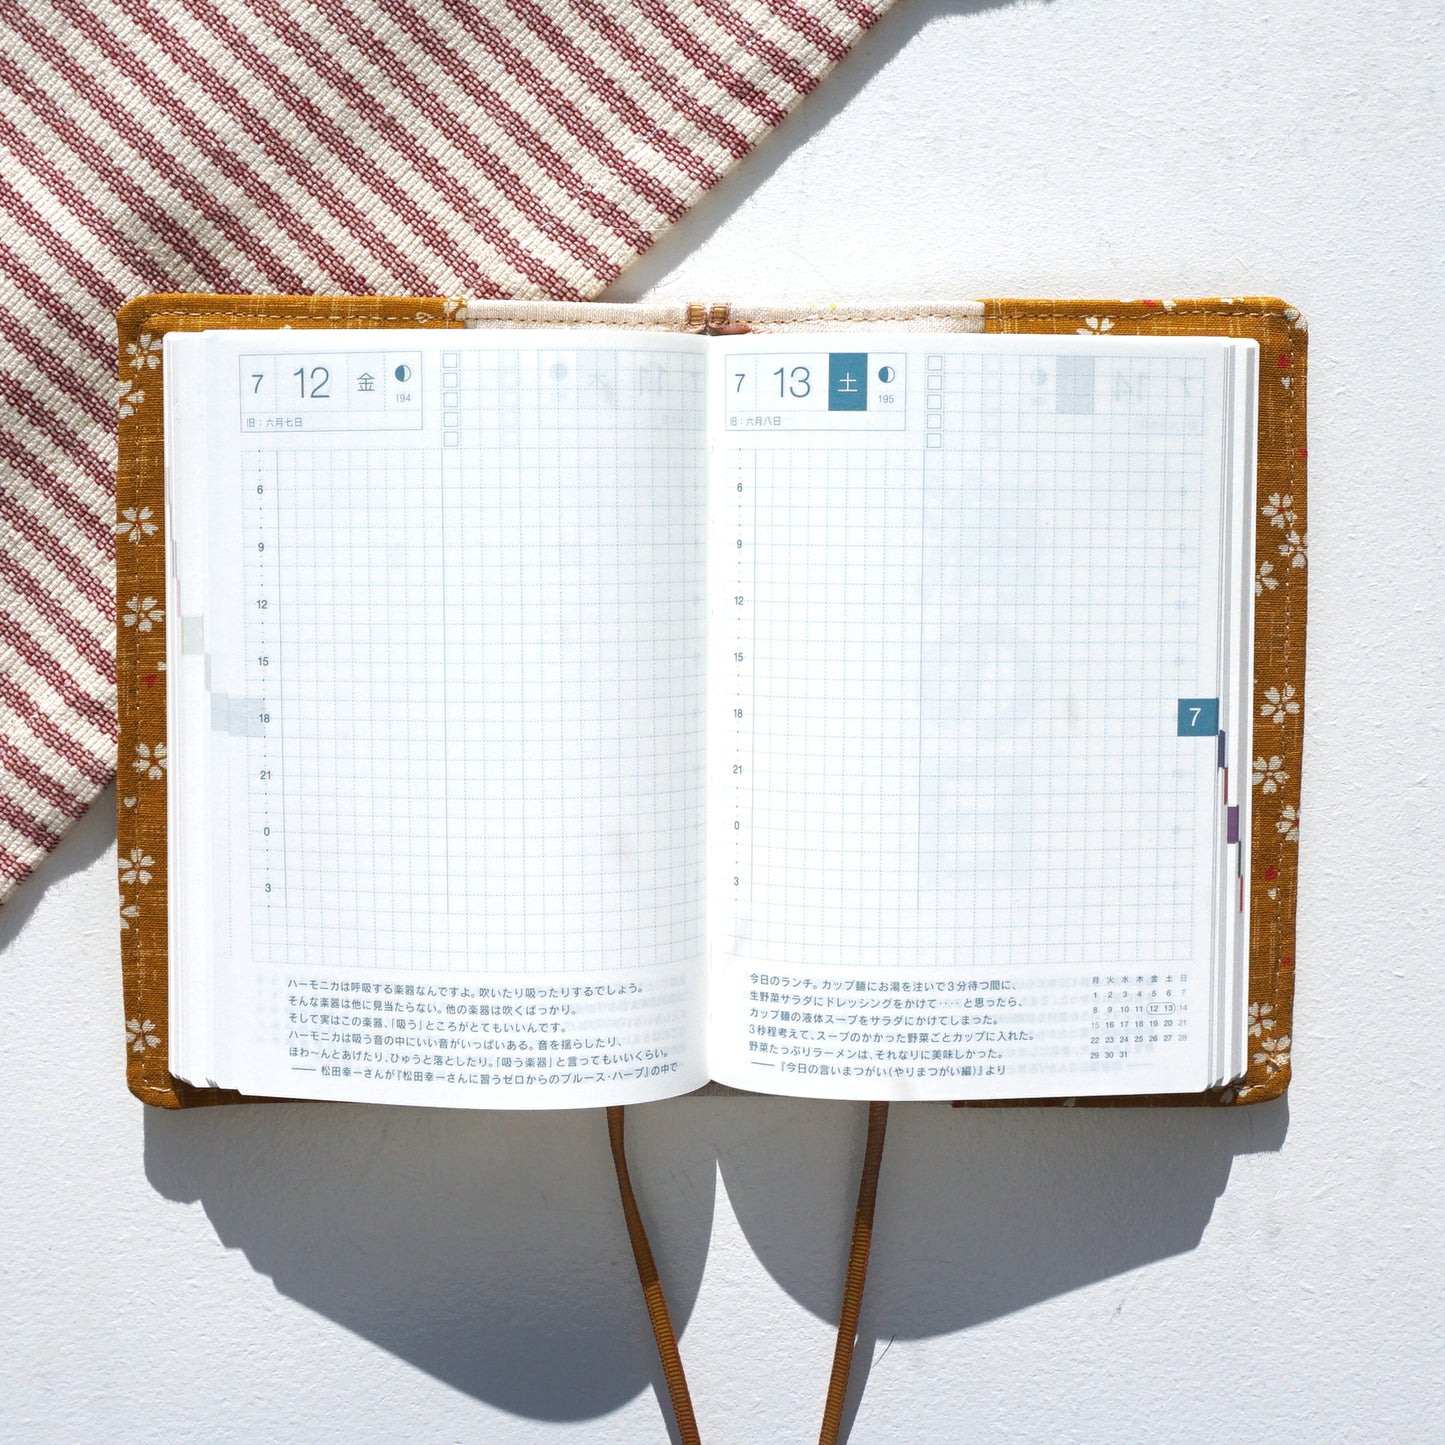 7 12 金 194
旧：六月七日
6
9
12
15
18
21
0
3
ハーモニカは呼吸する楽器なんですよ。吹いたり吸ったりするでしょう。
そんな楽器は他に見当たらない。他の楽器は吹くばっかり。
そして実はこの楽器、「吸う」ところがとてもいいんです。
ハーモニカは吸う音の中にいい音がいっぱいある。音を揺らしたり、
ほわ〜んとあげたり、ひゅうと落としたり。「吸う楽器」と言ってもいいくらい。
―― 松田幸一さんが『松田幸一さんに習うゼロからのブルース・ハープ』の中で
7 13 土 195
旧：六月八日
6
9
12
15
18
21
0
3
7
今日のランチ。カップ麺にお湯を注いで３分待つ間に、
生野菜サラダにドレッシングをかけて‥‥と思ったら、
カップ麺の液体スープをサラダにかけてしまった。
３秒程考えて、スープのかかった野菜ごとカップに入れた。
野菜たっぷりラーメンは、それなりに美味しかった。
―― 『今日の言いまつがい（やりまつがい編）』より
月 火 水 木 金 土 日
1 2 3 4 5 6 7
8 9 10 11 12 13 14
15 16 17 18 19 20 21
22 23 24 25 26 27 28
29 30 31